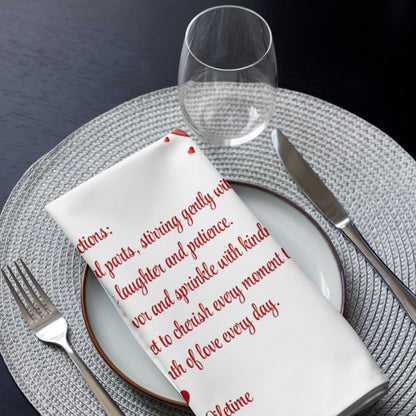 ctions:
l parts, stirring gently wi
laughter and patience.
vor and sprinkle with kindn
et to cherish every moment
th of love every day.
fetime